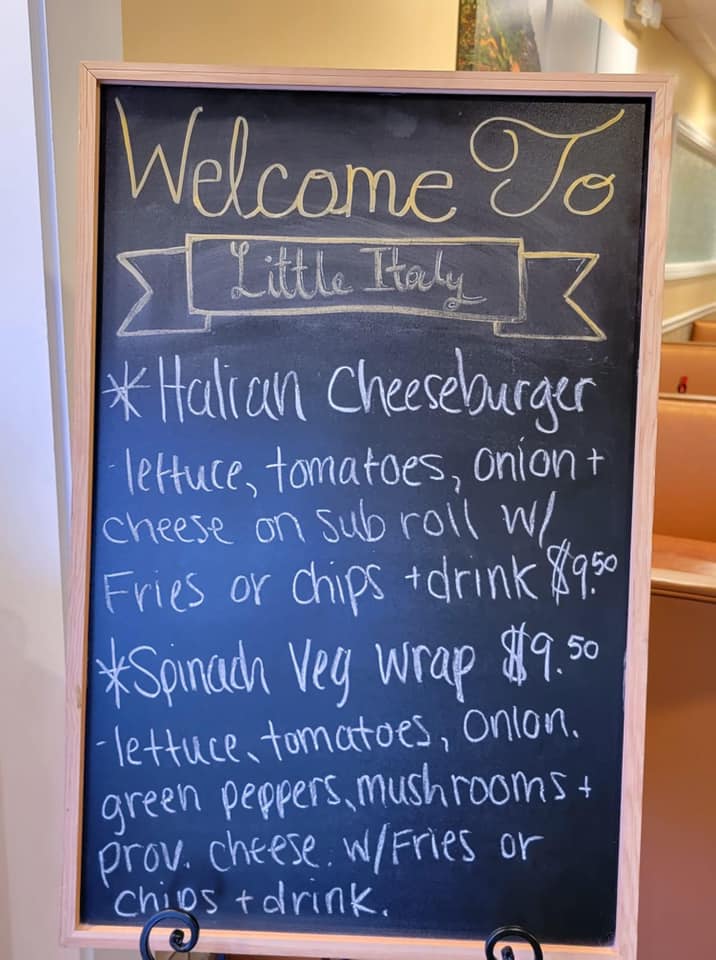 Welcome To
Little Italy
* Italian Cheeseburger
- lettuce, tomatoes, onion +
cheese on sub roll w/
Fries or chips + drink $9.50
* Spinach Veg wrap $9.50
- lettuce, tomatoes, onion.
green peppers, mushrooms +
prov. cheese. w/Fries or
chips + drink.